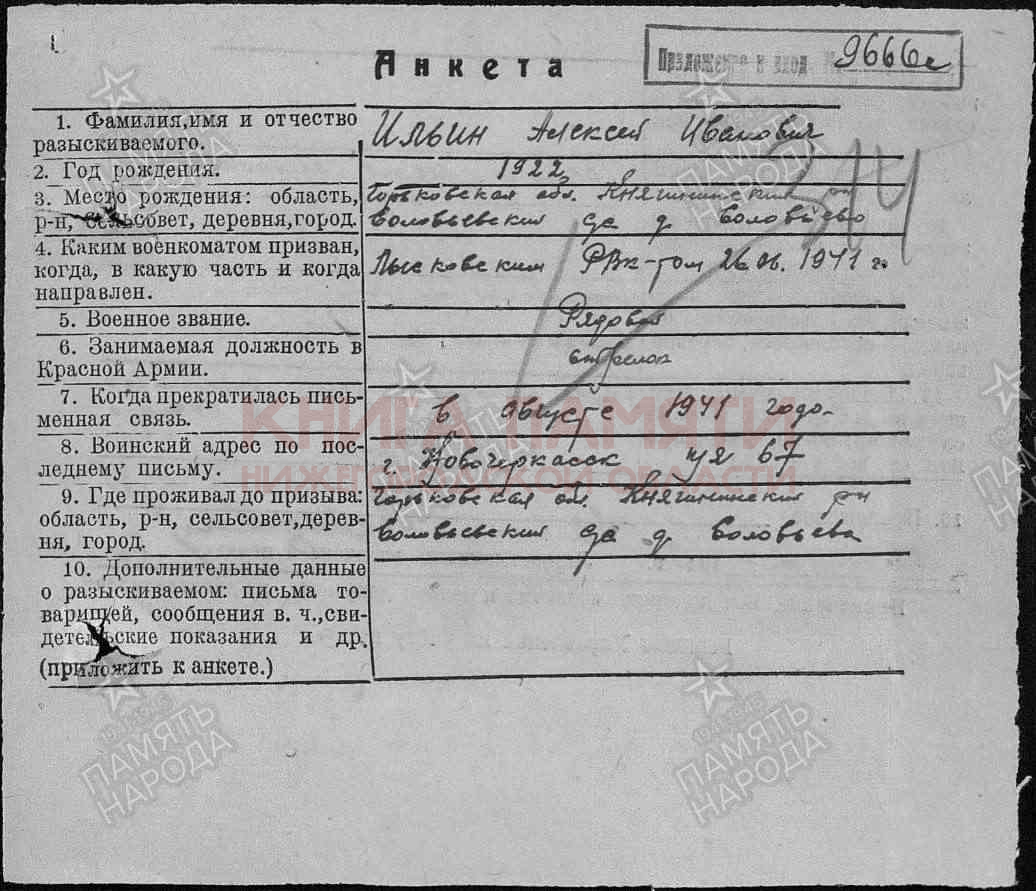 Анкета
Приложение к вход. № 9666с
1. Фамилия,имя и отчество
разыскиваемого.
Ильин Алексей Иванович
2. Год рождения.
1922
3. Место рождения: область,
р-н, сельсовет, деревня,город.
Горьковская обл. Княгининский рн
Соловьевский с/с д Соловьево
4. Каким военкоматом призван,
когда, в какую часть и когда
направлен.
Лысковским РВк-том 1941 г.
5. Военное звание.
Рядовой
6. Занимаемая должность в
Красной Армии.
стрелок
7. Когда прекратилась пись-
менная связь.
в августе 1941 годо
8. Воинский адрес по пос-
леднему письму.
г. Новочеркасск п/я 67
9. Где проживал до призыва:
область, р-н, сельсовет,дерев-
ня, город.
Горьковская обл. Княгининский рн
Соловьевский с/с д Соловьева
10. Дополнительные данные
о разыскиваемом: письма то-
варищей, сообщения в. ч.,сви-
детельские показания и др.
(приложить к анкете.)
КНИГА ПАМЯТИ
НИЖЕГОРОДСКОЙ ОБЛАСТИ
ПАМЯТЬ
НАРОДА